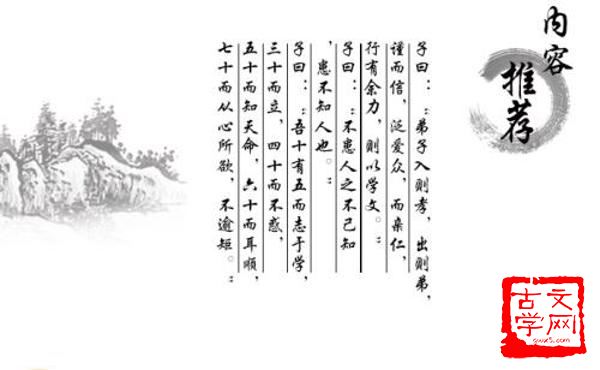 内容
推荐
子曰：：弟子入则孝，出则弟，
谨而信，泛爱众，而亲仁，
行有余力，则以学文。：
子曰：：不患人之不己知
，患不知人也。：
子曰：：吾十有五而志于学，
三十而立，四十而不惑，
五十而知天命，六十而耳顺，
七十而从心所欲，不逾矩。：
古文
学网